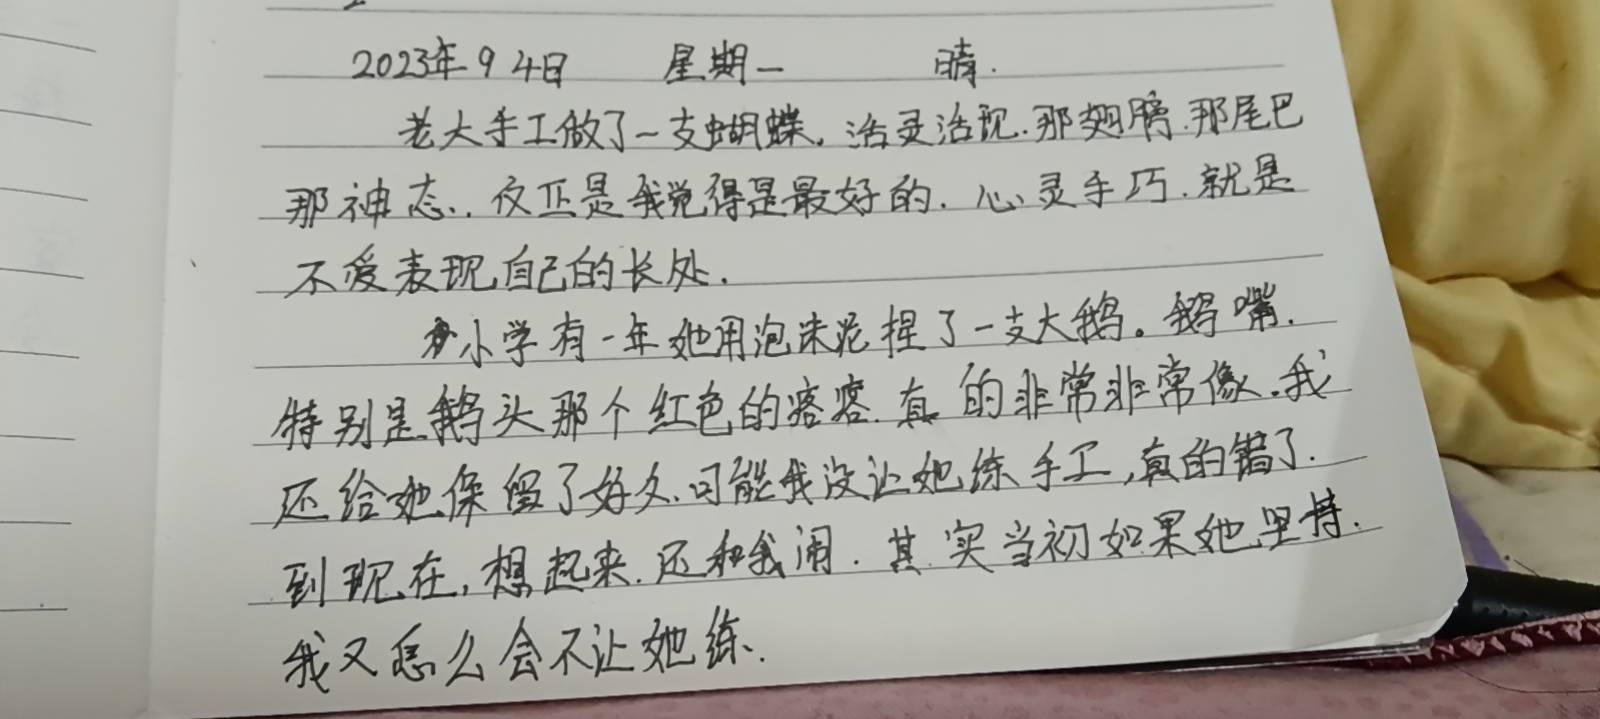 2023年9 4日 星期一 晴.
老大手工做了一支蝴蝶，活灵活现.那翅膀.那尾巴
那神态..反正是我觉得是最好的.心灵手巧.就是
不爱表现自己的长处.
小学有一年她用泡沫泥捏了一支大鹅。鹅嘴.
特别是鹅头那个红色的疙瘩.真的非常非常像.我
还给她保留了好久.可能我没让她练手工,真的错了.
到现在,想起来.还和我闹.其实当初如果她坚持.
我又怎么会不让她练.